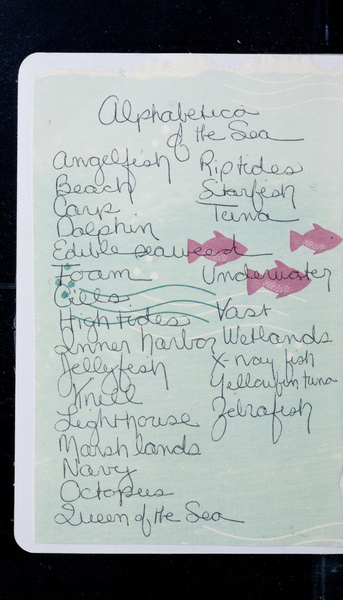 Alphabetica
of the Sea
Angelfish
Beach
Carp
Dolphin
Edible seaweed
Foam
Gills
High tides
Inner harbor
Jellyfish
Krill
Lighthouse
Marshlands
Navy
Octopus
Queen of the Sea
Riptides
Starfish
Tuna
Underwater
Vast
Wetlands
X-ray fish
Yellowfin tuna
Zebrafish